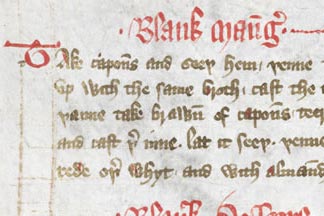 Blank Maung
Take capons and seeþ hem, þenne
up with the same broth, cast the
þanne take brawn of capons tees
and cast þer inne. lat it seeþ. þenne
rede oþer whyt. and with almand
Blank